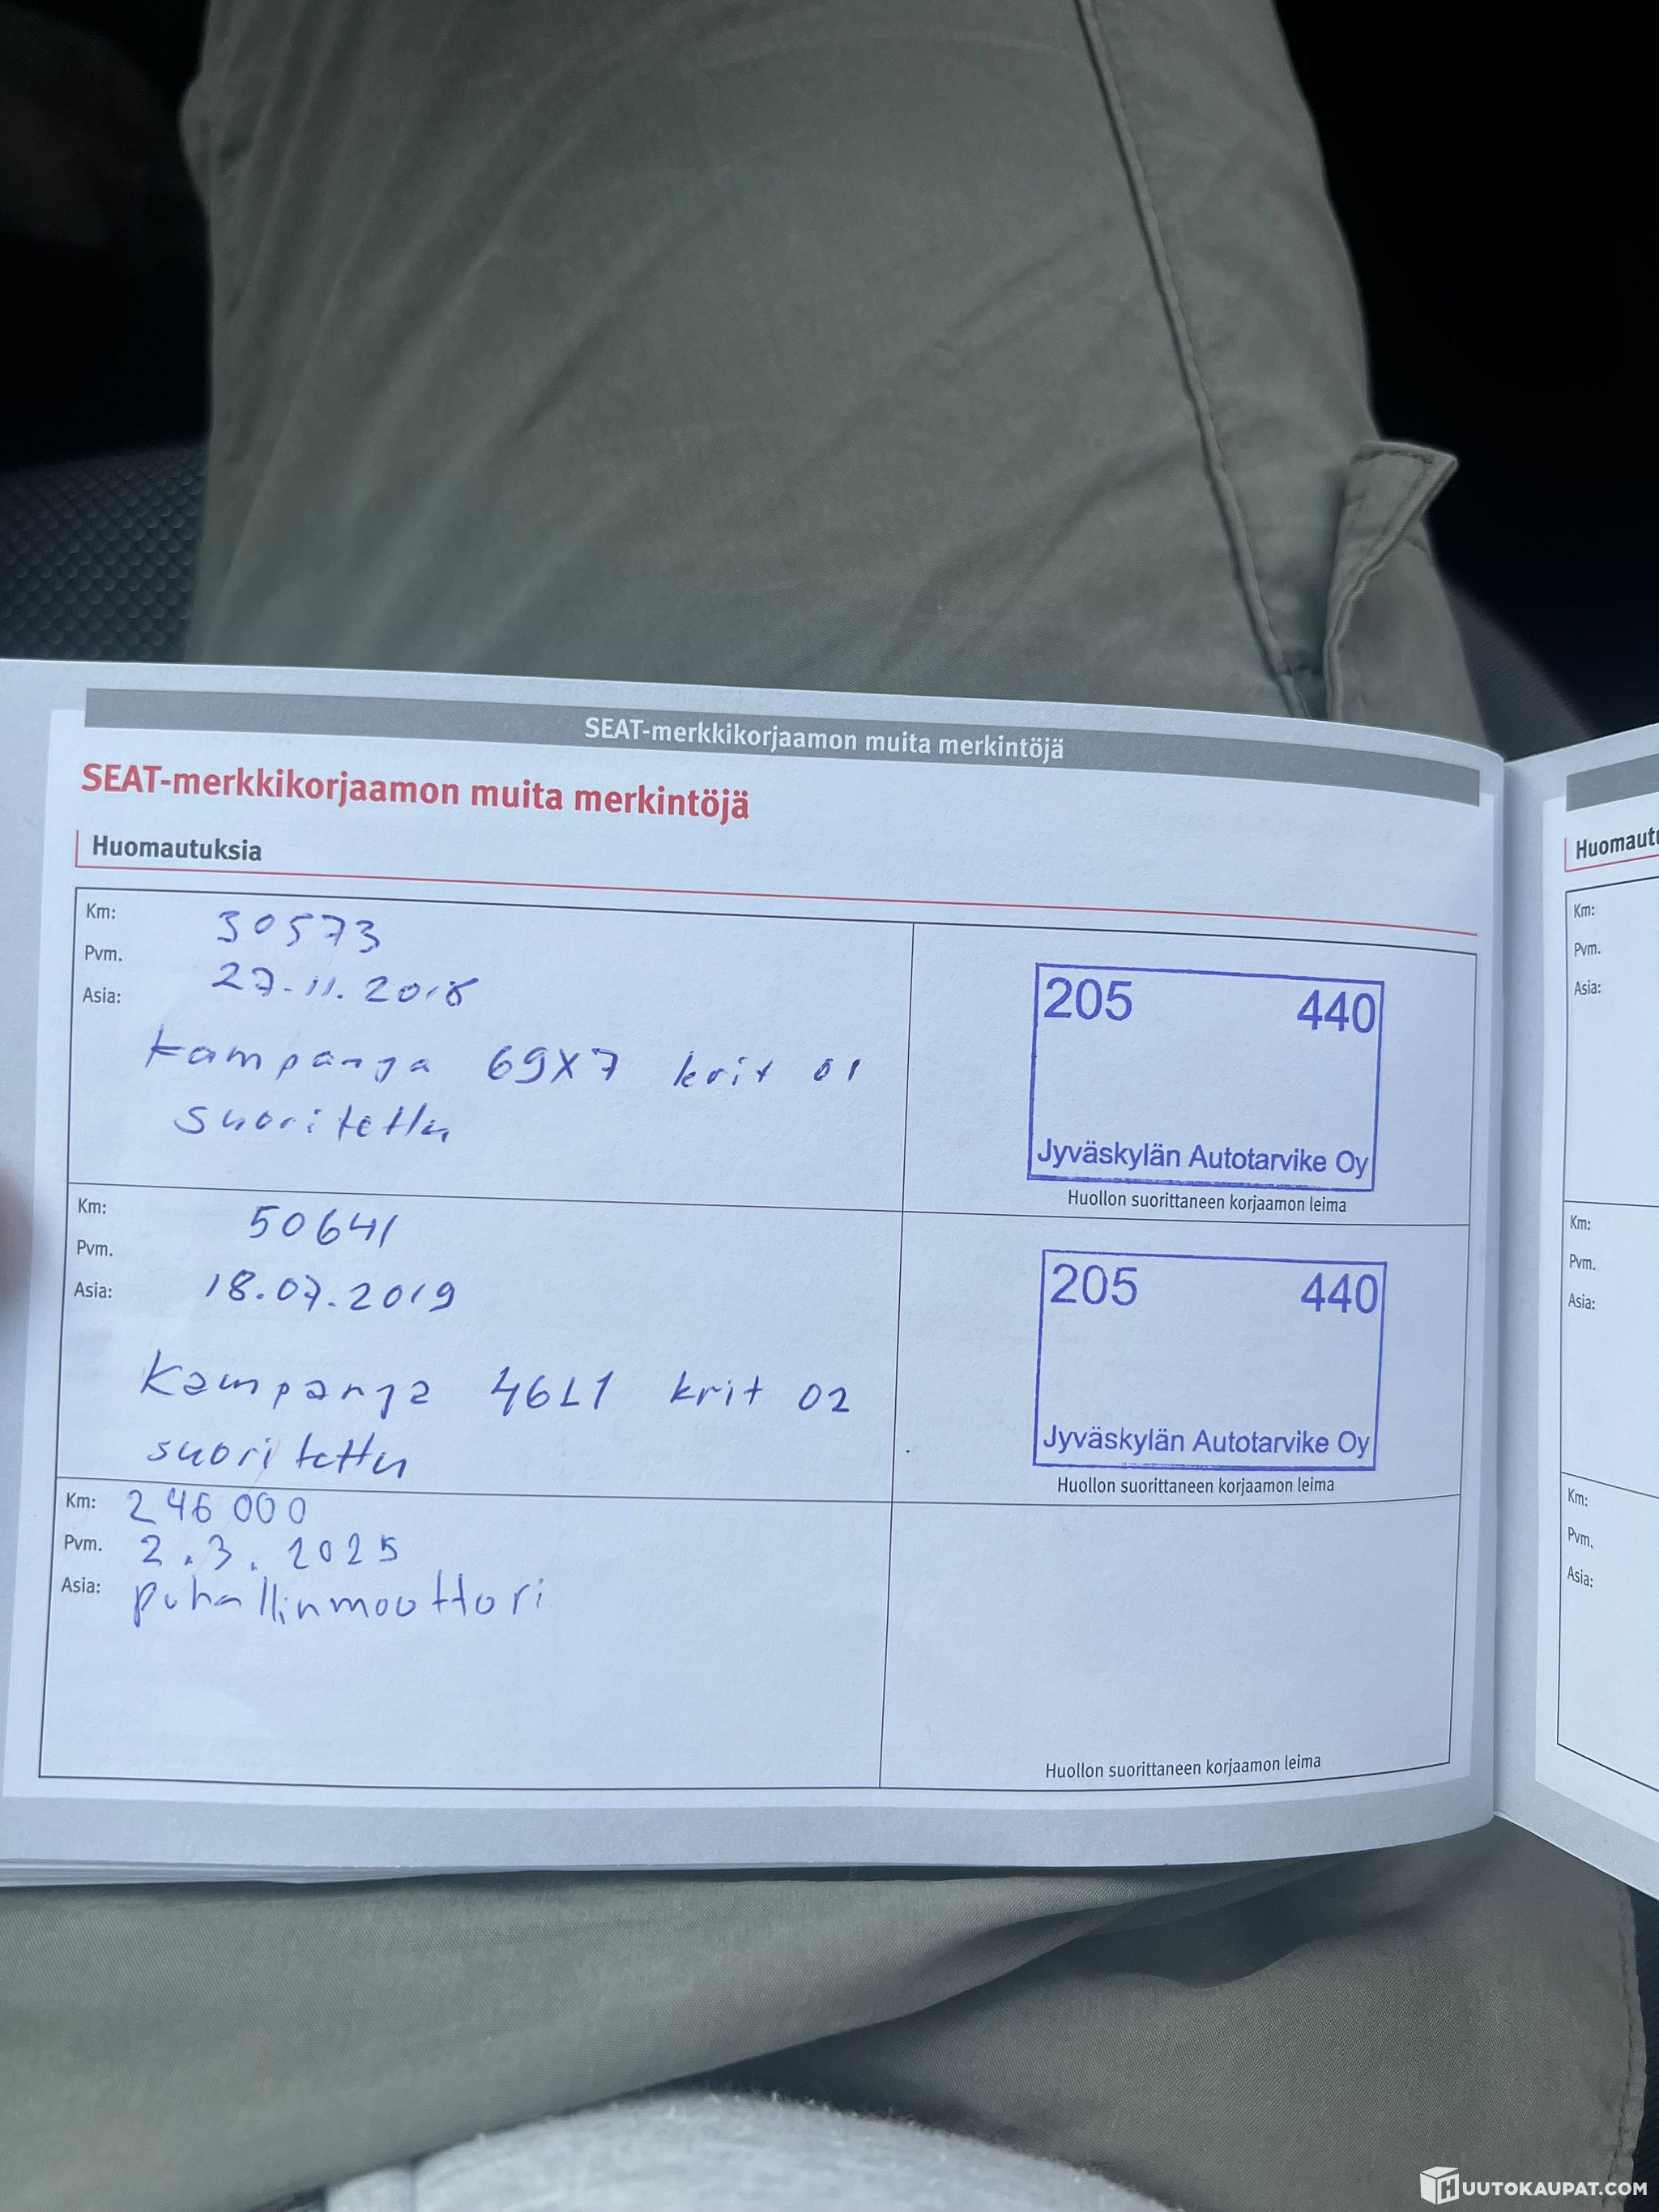 SEAT-merkkikorjaamon muita merkintöjä
SEAT-merkkikorjaamon muita merkintöjä
Huomautuksia
Km: 30573
Pvm. 27.11.2018
Asia:
kampanja 69X7 krit 01
suoritettu
205 440
Jyväskylän Autotarvike Oy
Huollon suorittaneen korjaamon leima
Km: 50641
Pvm.
Asia: 18.07.2019
Kampanja 46L1 krit 02
suoritettu
205 440
Jyväskylän Autotarvike Oy
Huollon suorittaneen korjaamon leima
Km: 246 000
Pvm. 2.3.2025
Asia: puhallinmoottori
Huollon suorittaneen korjaamon leima
Km:
Pvm.
Asia:
Km:
Pvm.
Asia:
Km:
Pvm.
Asia:
HUUTOKAUPAT.COM